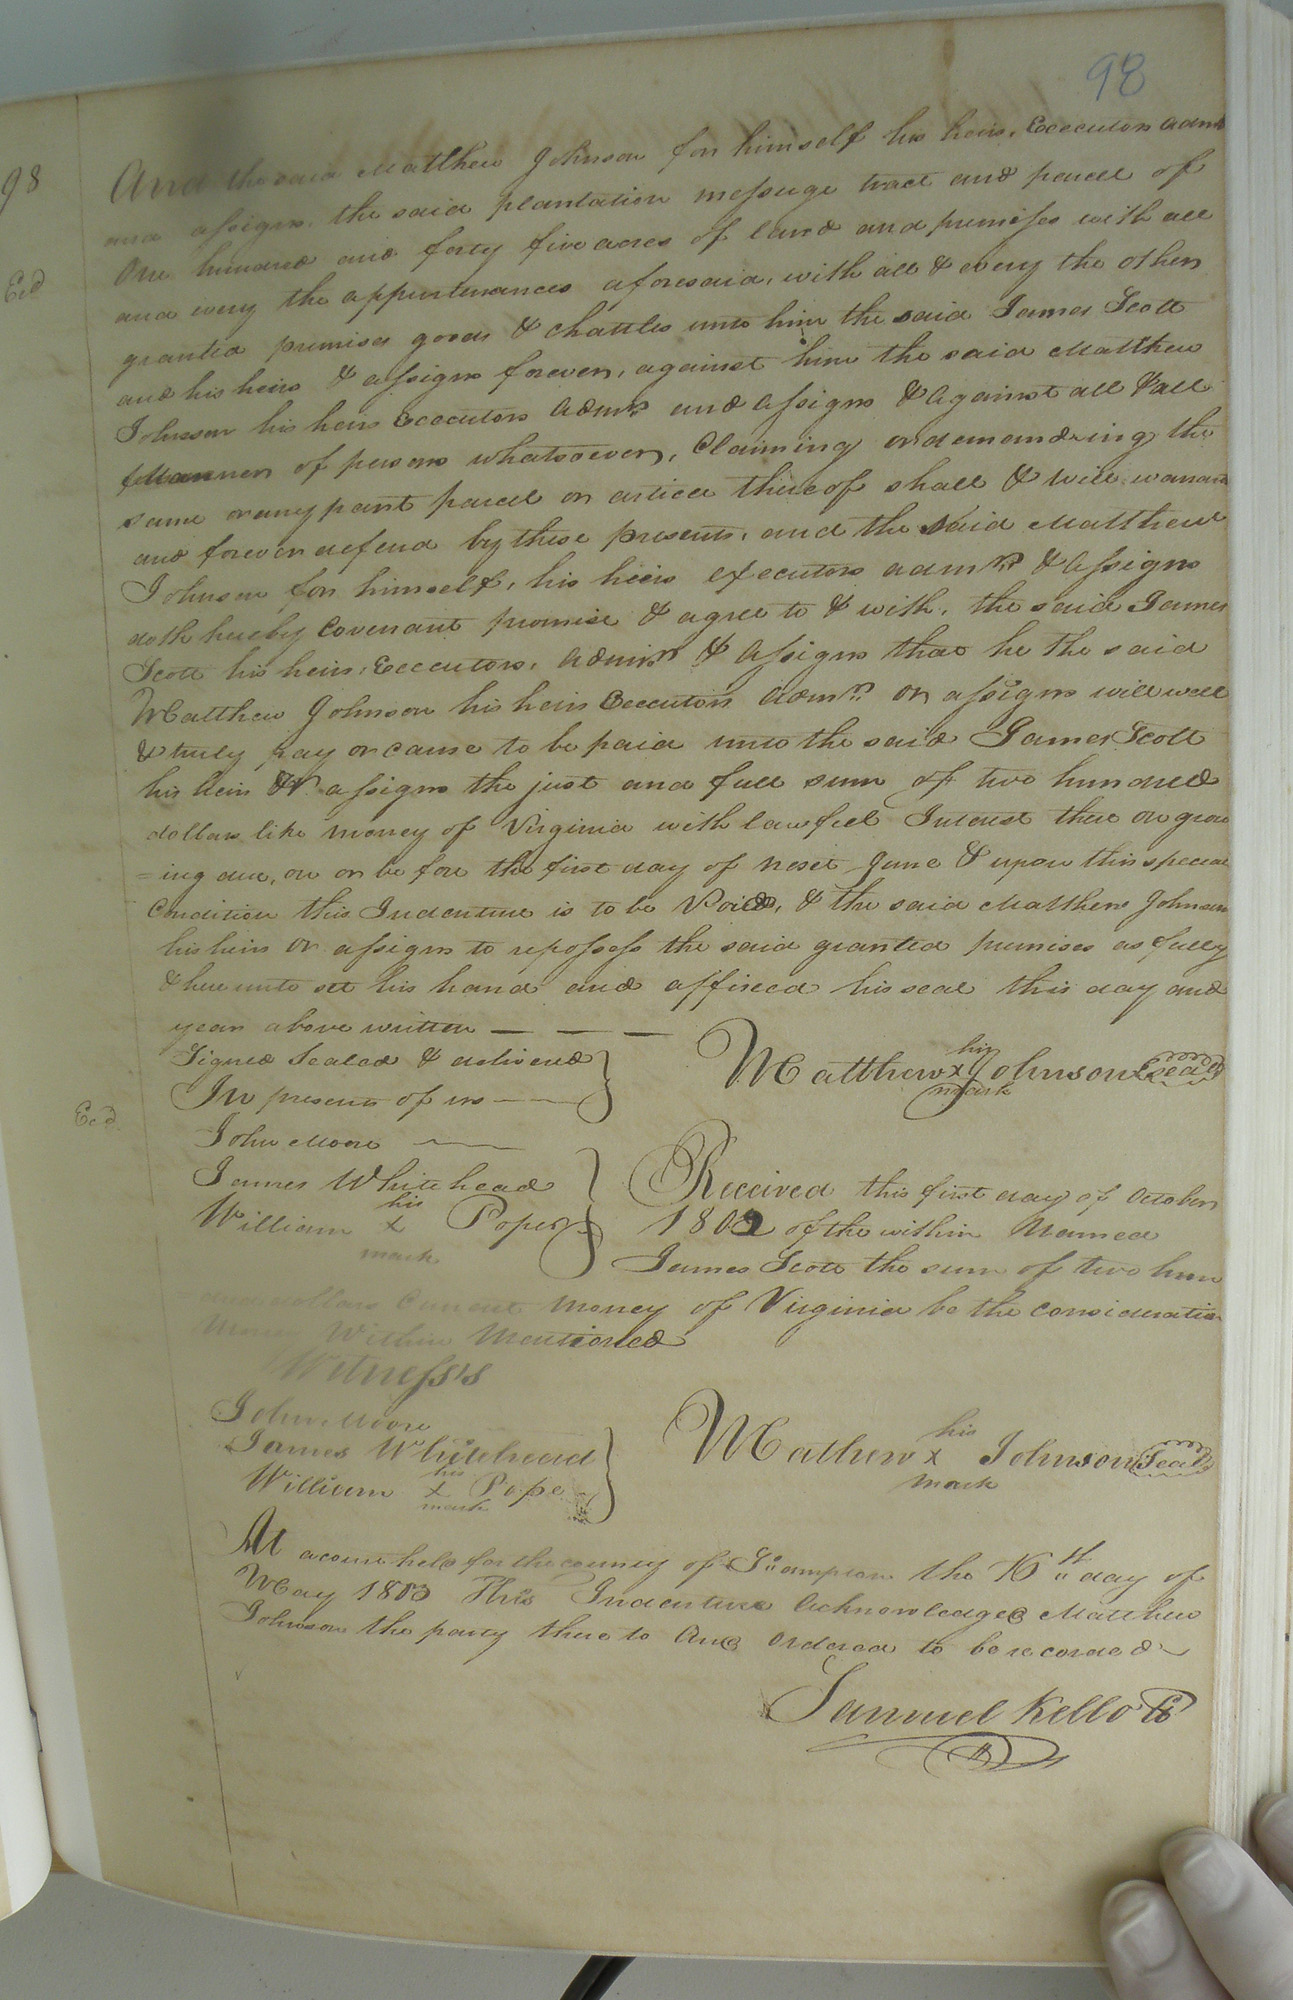 98
98
And the said Matthew Johnson for himself his heirs, Executors Adm
and assigns. the said plantation messuge tract and parcel of
One hundred and forty five acres of land and premises with all
and every the appurtenances aforesaid, with all & every the other
granted premises goods & chattles unto him the said James Scott
and his heirs & assigns forever, against him the said Matthew
Johnson his heirs Executors Admrs and Assigns & Against all & all
Manner of persons whatsoever, Claiming or demandeing the
same or any part parcel or article thereof shall & will warrant
and forever defend by these presents, and the said Matthew
Johnson for himself, his heirs executors admrs & Assigns
doth hereby Covenant promise & agree to & with, the said James
Scott his heirs, Executors, Admrs & Assigns that he the said
Matthew Johnson his heirs Executors Admrs or assigns will well
& truly pay or cause to be paid unto the said James Scott
his heirs & assigns the just and full sum of two hundred
dollars like money of Virginia with lawfull Interest there on grow
=ing due, on or before the first day of next June & upon this special
Condition this Indenture is to be Void, & the said Matthew Johnson
his heirs or assigns to repossess the said granted premises as fully
& hereunto set his hand and affixed his seal this day and
year above written — — —
Signed Sealed & delivered
In presents of us
Matthew his x mark Johnson Seal
Exd
Exd
John Moore
James Whitehead
William his x mark Pope
Received this first day of October
1802 of the within Named
James Scott the sum of two hun
dred dollars Current Money of Virginia be the consideration
Money Within Mentioned
Witness's
John Moore
James Whitehead
William his x mark Pope
Mathew his x mark Johnson Seal
At a court held for the county of So:ampton the 16th day of
May 1803 This Indenture Acknowledged Matthew
Johnson the party there to And Ordered to be recorded
Samuel Kello